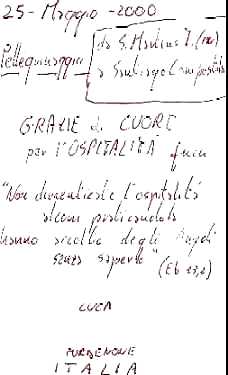 25 - Maggio - 2000
da S. Martino
Pellegrinaggio
a Santiago Compostela
GRAZIE di CUORE
per l'OSPITALITÀ
"Non dimenticate l'ospitalità
alcuni praticandola
hanno accolto degli Angeli
senza saperlo" (Eb 13,2)
LUCA
PORDENONE
ITALIA